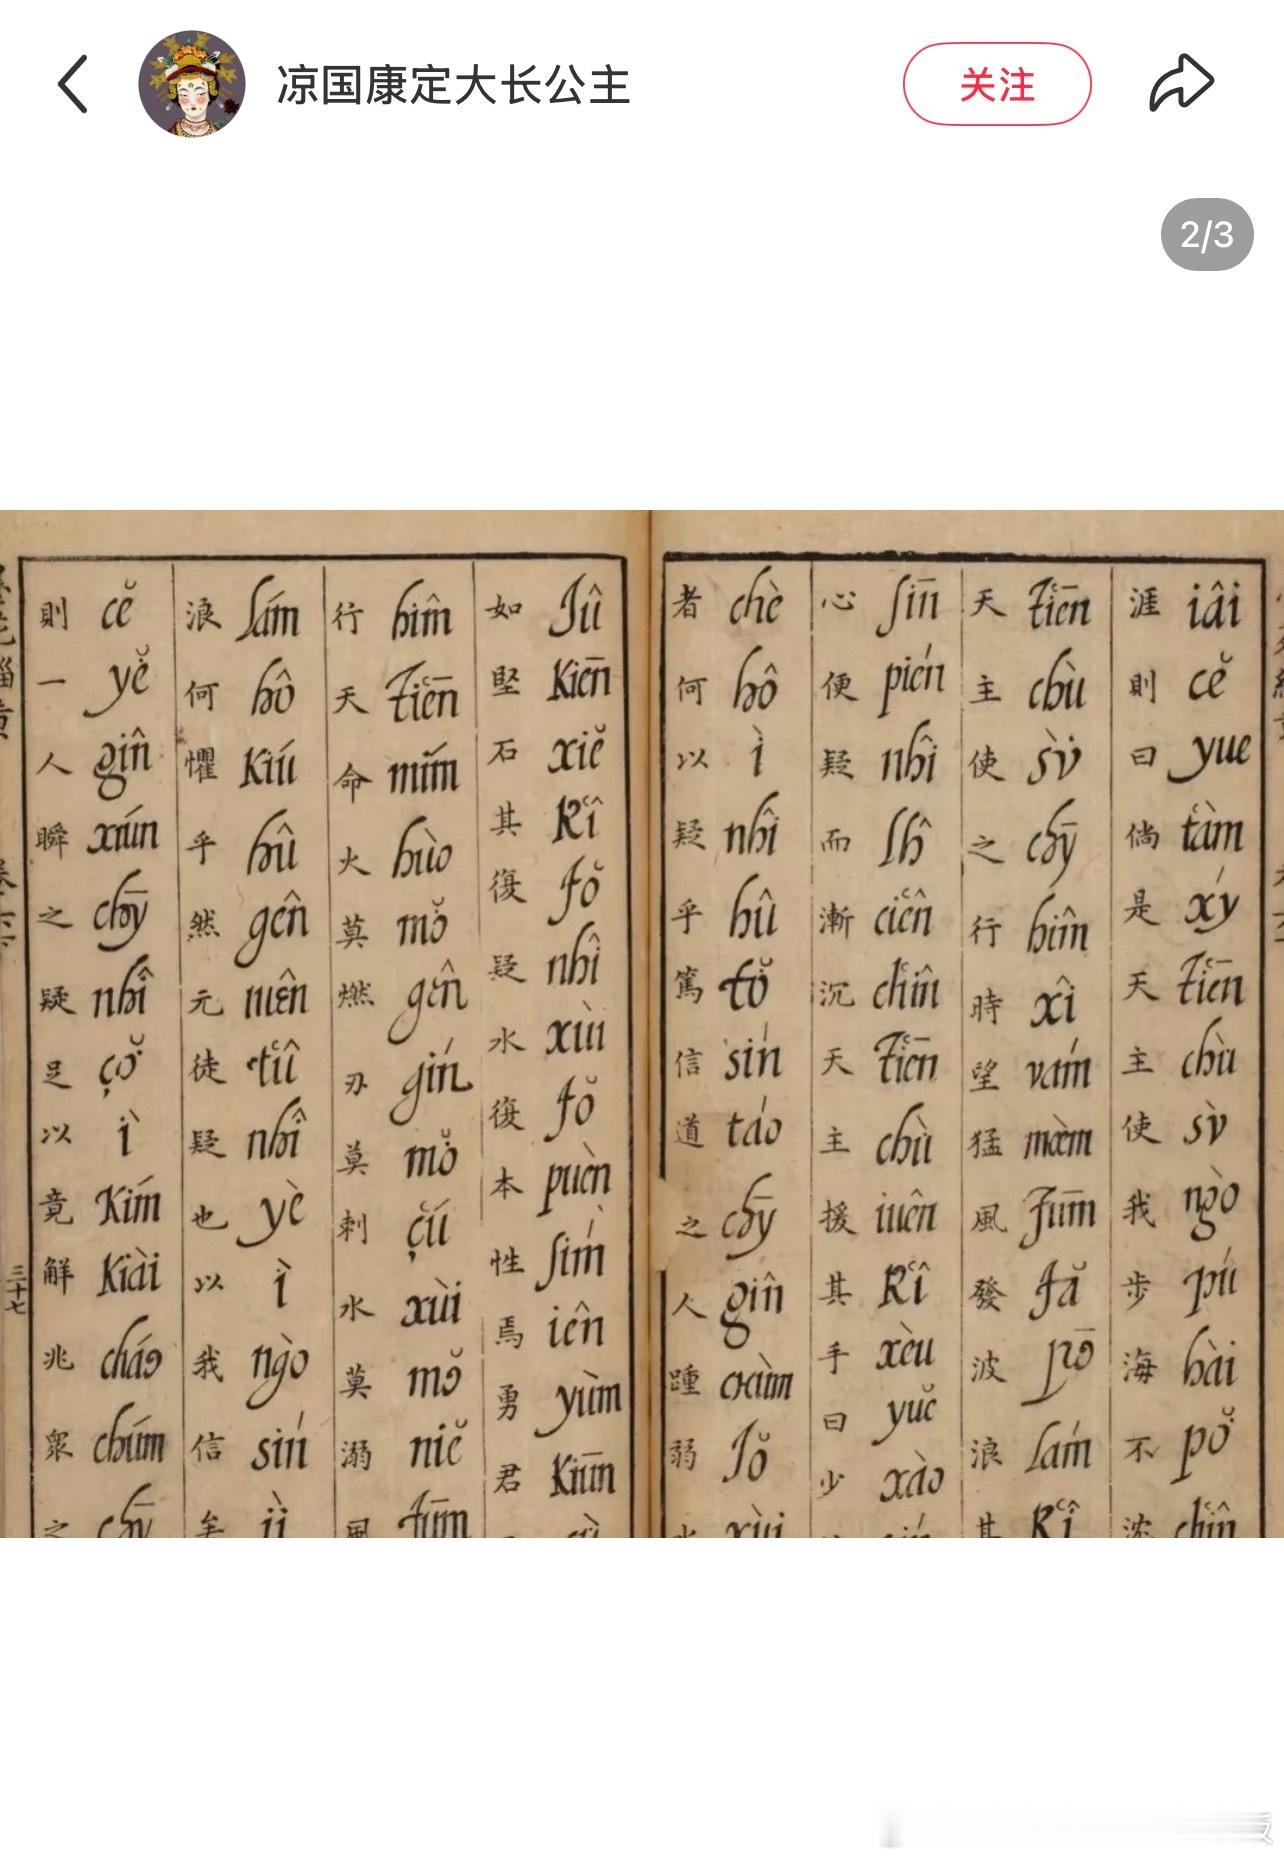 凉国康定大长公主
关注
2/3
涯 iâi 則 cě 曰 yue 倘 tàm 是 xý 天 tiēn 主 chù 使 sù 我 ngò 步 pú 海 hài 不 pŏ
天 tiēn 主 chù 使 sù 之 chȳ 行 hîm 時 xî 望 vám 猛 mèm 風 fūm 發 fă 波 pō 浪 lám 其 kî
心 sīn 便 pién 疑 nhî 而 lĥ 漸 ciên 沉 chîn 天 tiēn 主 chù 援 iuên 其 kî 手 xèu 曰 yuě 少 xào
者 chè 何 hô 以 ì 疑 nhî 乎 hû 篤 tŏ 信 sín 道 táo 之 chȳ 人 gîn 踵 chùm 弱 jŏ 水 xùi
如 jû 堅 kiēn 石 xiě 其 kî 復 fŏ 疑 nhî 水 xùi 復 fŏ 本 puèn 性 sím 焉 iên 勇 yùm 君 kiūn
行 hîm 天 tiēn 命 mím 火 hùo 莫 mŏ 燃 gên 刃 gín 莫 mŏ 刺 çú 水 xùi 莫 mŏ 溺 niě 風 fūm
浪 lám 何 hô 懼 kiú 乎 hû 然 gên 元 iuên 徒 tû 疑 nhî 也 yè 以 ì 我 ngò 信 sín 矣 ì
則 cě 一 yě 人 gîn 瞬 xiún 之 chȳ 疑 nhî 足 çŏ 以 ì 竟 kím 解 kiài 兆 cháo 眾 chúm 之 chȳ
三十七